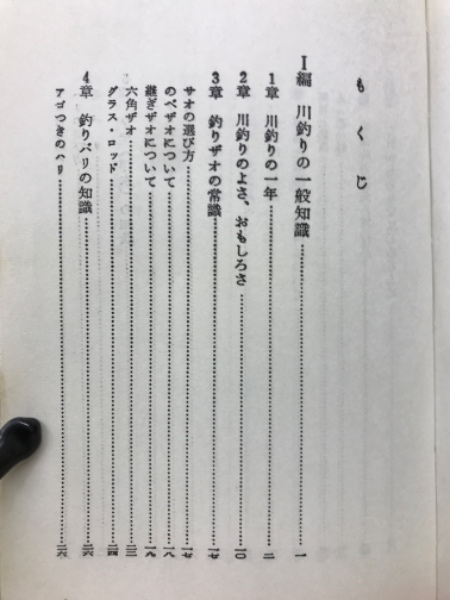 もくじ
Ⅰ編 川釣りの一般知識……一
1章 川釣りの一年……二
2章 川釣りのよさ、おもしろさ……一〇
3章 釣りザオの常識……一七
サオの選び方……一七
のベザオについて……一八
継ぎザオについて……一九
六角ザオ……二三
グラス・ロッド……二四
4章 釣りバリの知識……二六
アゴつきのハリ……二六